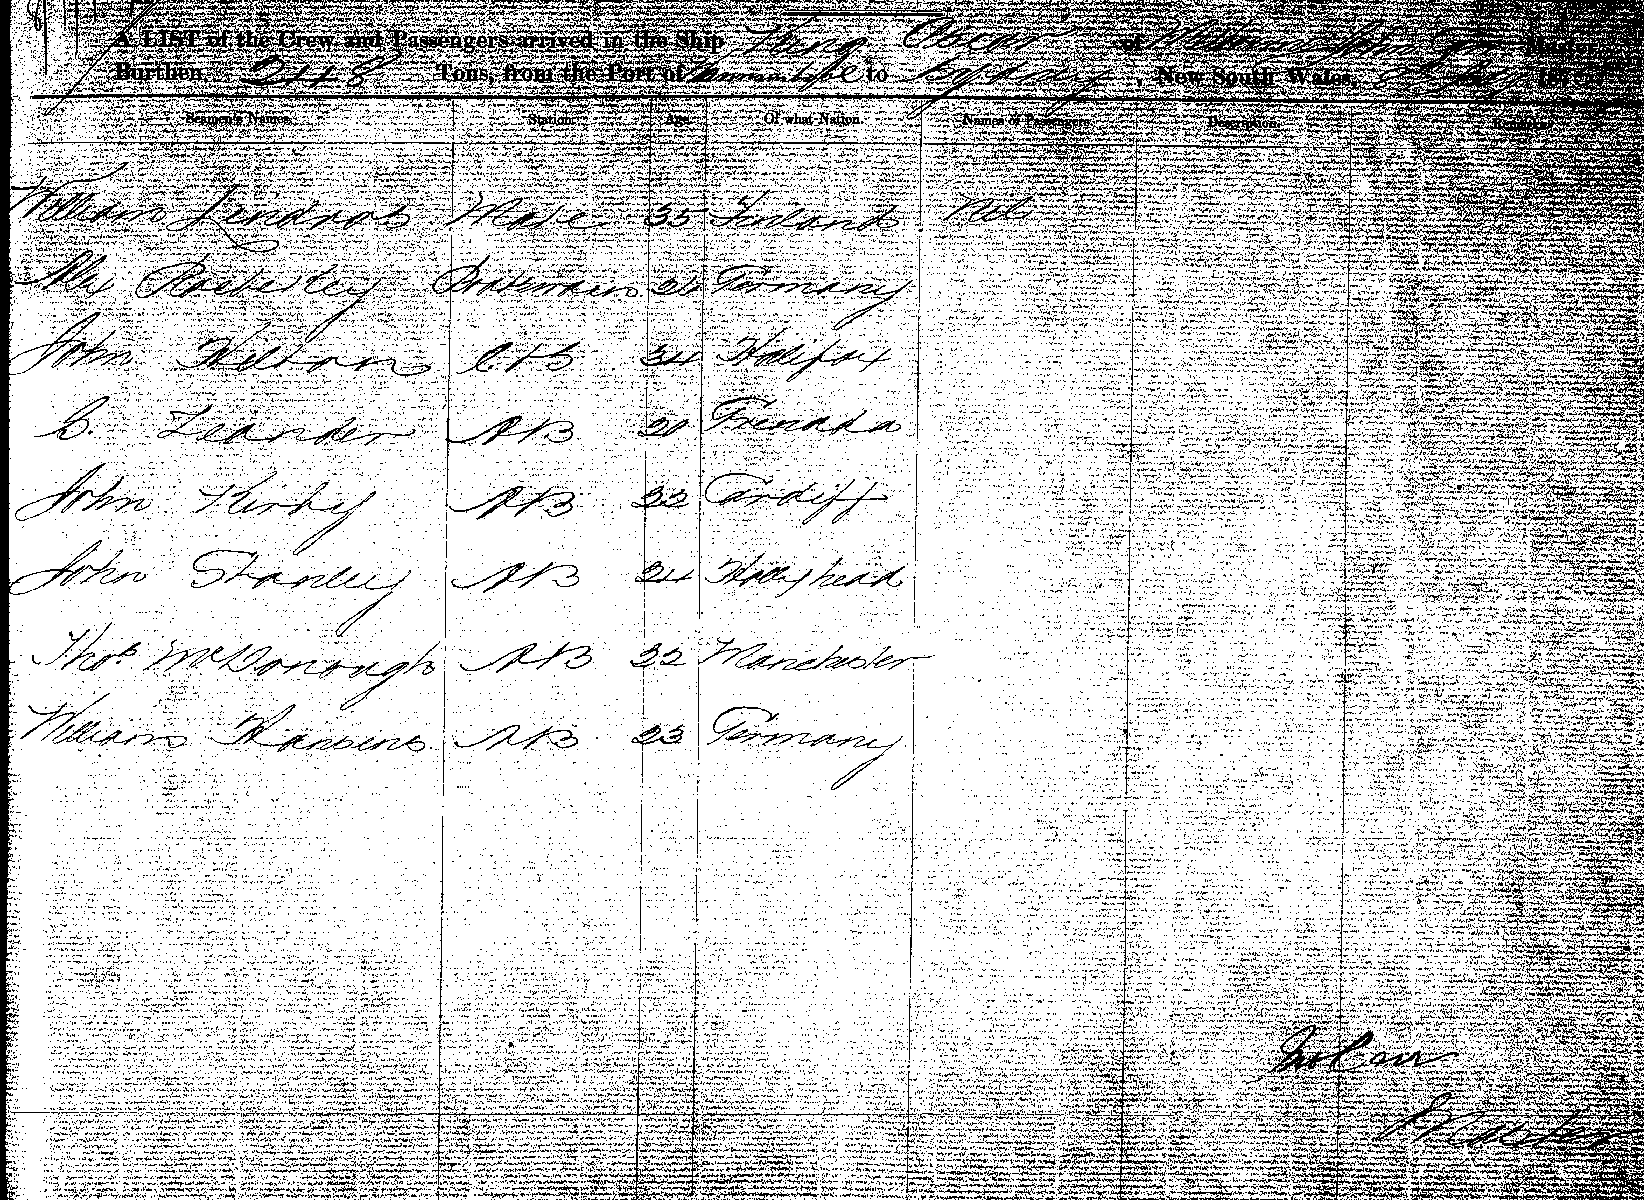 A LIST of the Crew and Passengers arrived in the Ship King Oscar of Melbourne John Carr Master
Burthen 248 Tons, from the Port of to Sydney, New South Wales, 187
Seamen's Names. Station. Age. Of what Nation. Names of Passengers. Description. Remarks.
William Mate 35 Finland Nil
Alex Boatswain 36 Germany
John Wilson C & S 34 Halifax
Leander AB 20 Grenada
John Kirby AB 22 Cardiff
John Stanley AB 24 Holyhead
Thos McDonough AB 22 Manchester
William Hansens AB 23 Germany
Jno Carr
Master